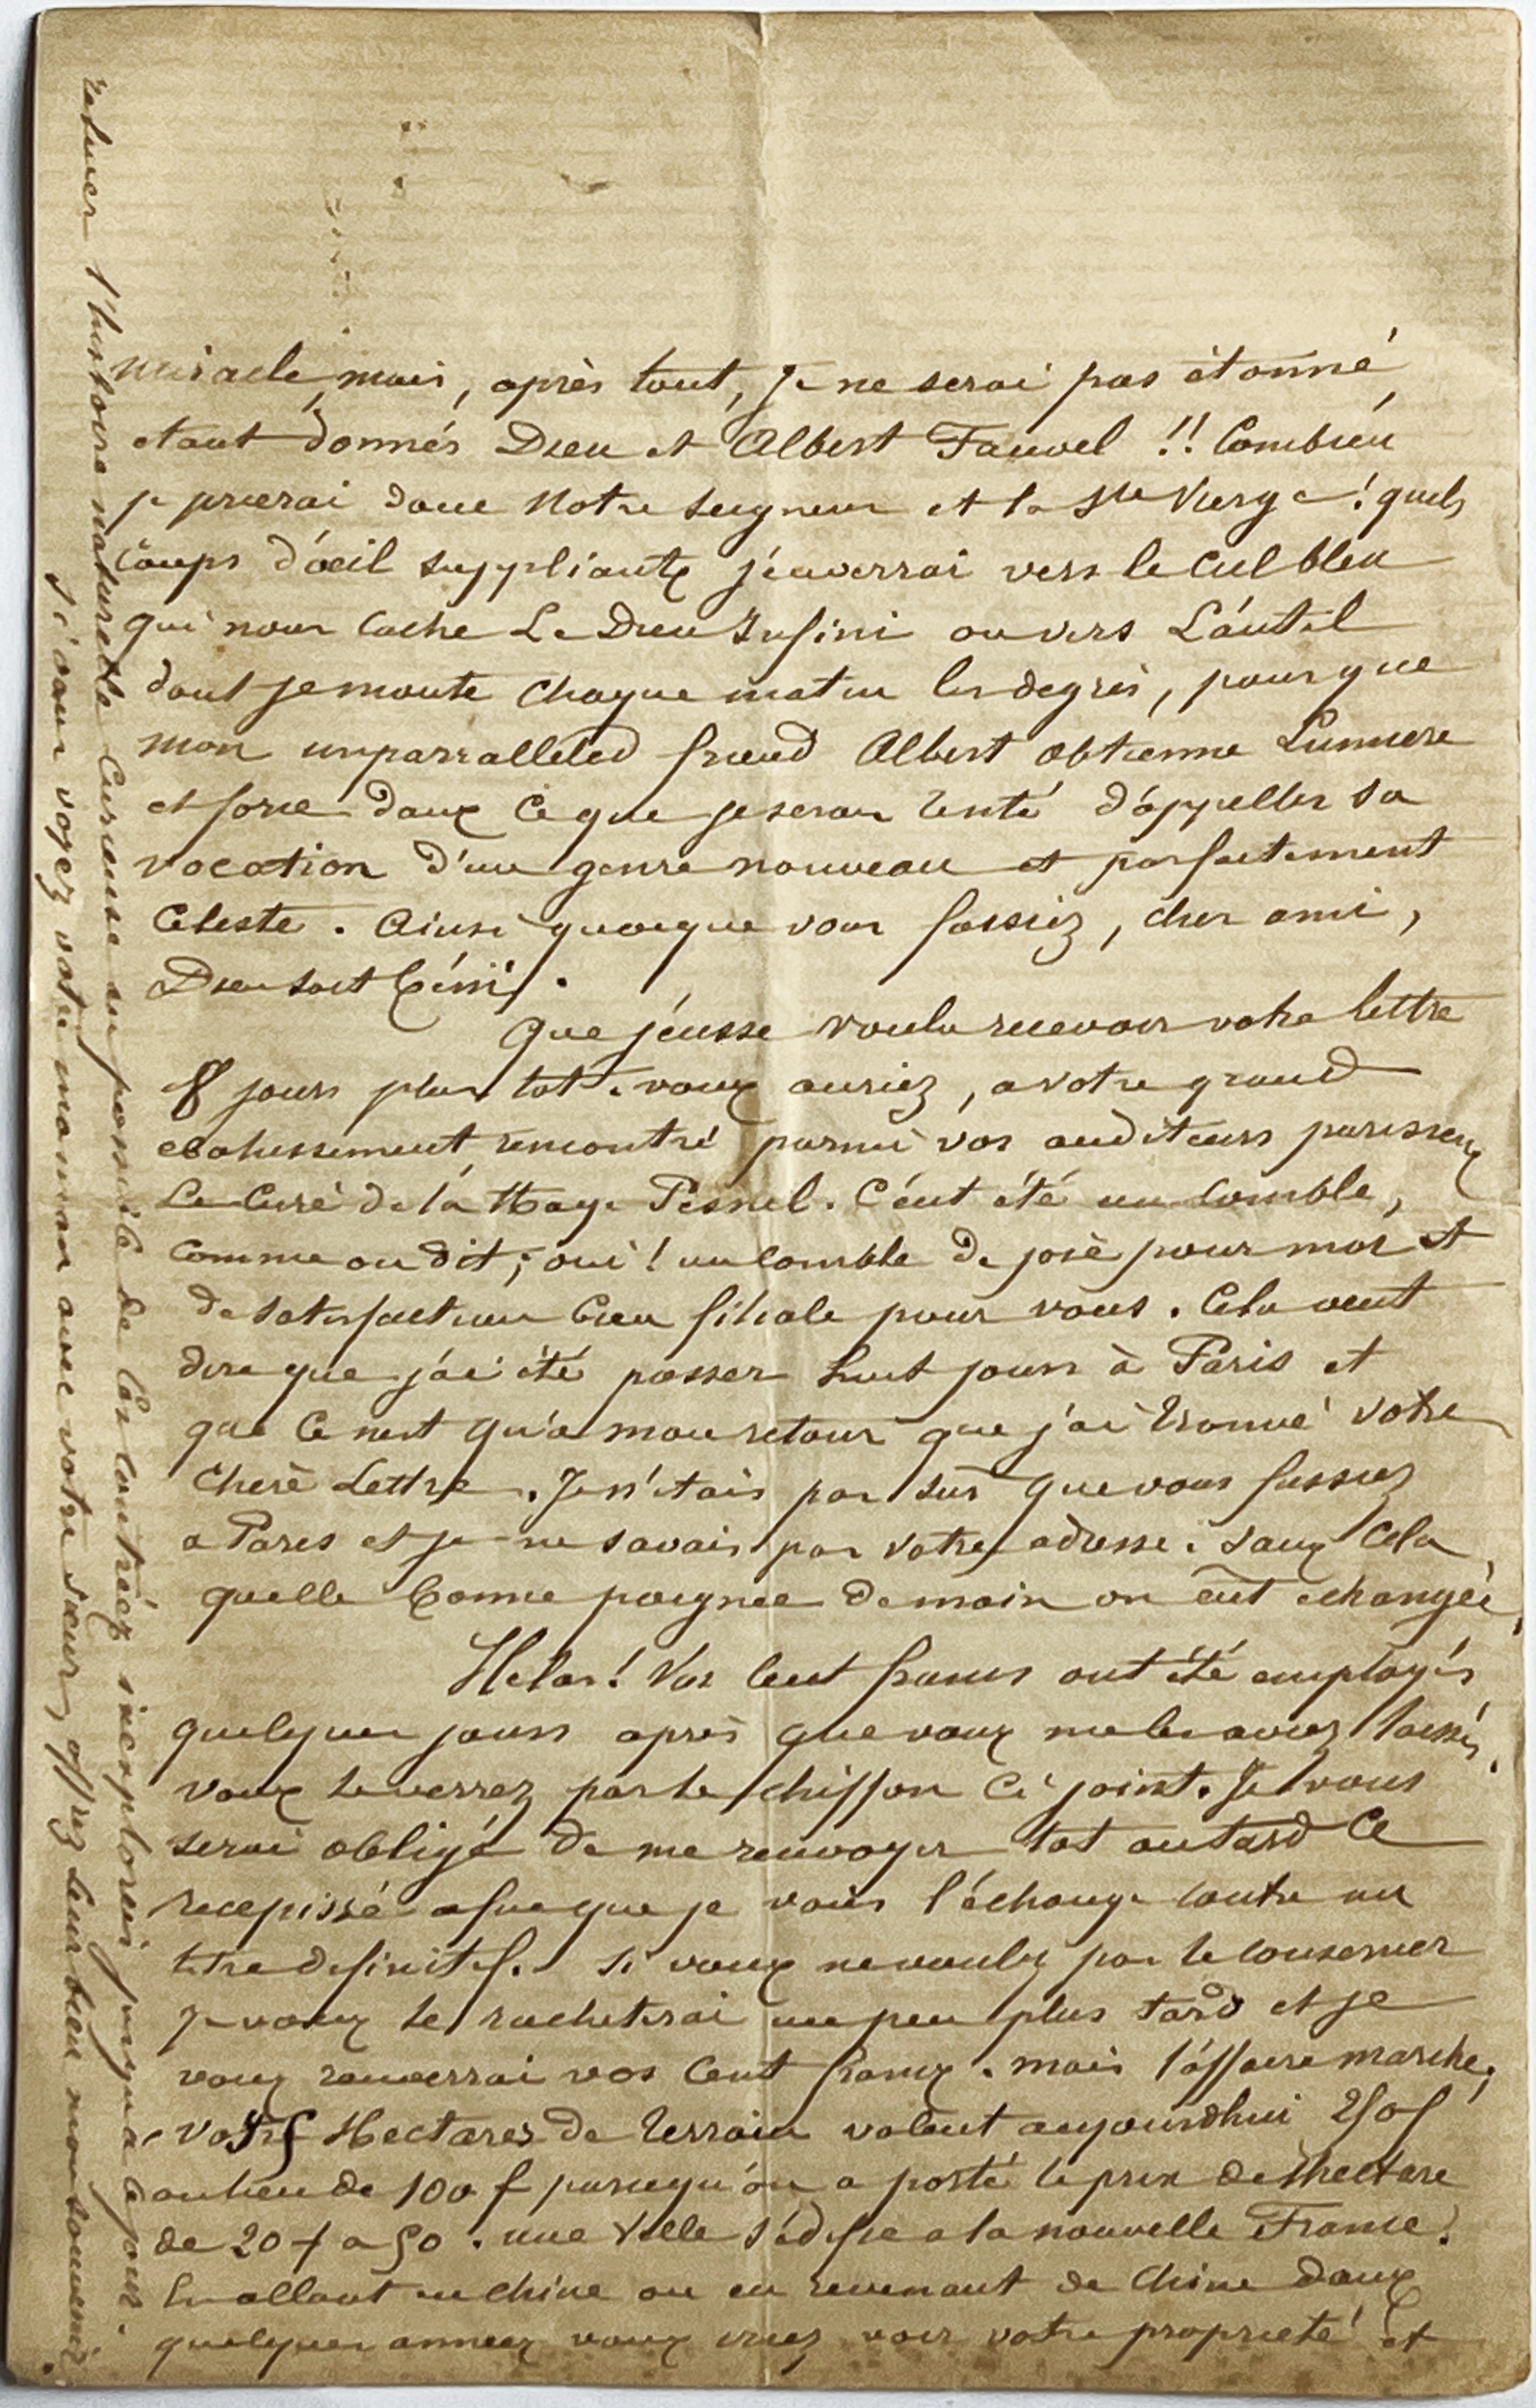 miracle, mais, après tout, je ne serai pas étonné,
etant donnés Dieu et Albert Fauvel !! Combien
je prierai donc Notre Seigneur et la Ste Vierge ! quels
coups d'œil suppliants j'enverrai vers le Ciel bleu
qui nous cache Le Dieu Infini ou vers L'autel
dont je monte chaque matin les degrés, pour que
mon unparralleled friend Albert obtienne Lumiere
et force dans ce que je serais tenté d'appeller sa
vocation d'un genre nouveau et parfaitement
Celeste. Ainsi quoique vous fassiez, cher ami,
Dieu soit béni.
Que j'eusse voulu recevoir votre lettre
8 jours plus tot. vous auriez, a votre grand
ebahissement, rencontré parmi vos auditeurs parisiens
Le Curé de la Haye Pesnel. C'eut été un comble,
comme on dit ; oui ! un comble de joie pour moi et
de satisfaction bien filiale pour vous. Cela veut
dire que j'ai été passer huit jours à Paris et
que ce n'est qu'a mon retour que j'ai trouvé votre
chere Lettre. Je n'etais pas sûr que vous fussiez
a Paris et je ne savais pas votre adresse. sans cela,
quelle bonne poignee de main on eût echangée.
Helas ! Vos cent francs ont été employés
quelques jours après que vous me les aviez laissés,
vous le verrez par le chiffon ci joint. Je vous
serai obligé de me renvoyer tot ou tard ce
recepissé afin que je vous l'échange contre un
titre definitif. Si vous ne voulez pas le conserver
je vous le racheterai un peu plus tard et je
vous renverrai vos cent francs. mais l'affaire marche,
vos 5 Hectares de terrain valent aujourdhui 250 f
au lieu de 100 f parcequ'on a porté le prix de l'hectare
de 20 f a 50. une Ville s'édifie a la nouvelle France !
En allant en Chine ou en revenant de Chine dans
quelques annees vous irez voir votre proprieté et
l'histoire naturelle curieuse au possible de ces contrées inexplorées jusqu'a ce jour.
Si vous voyez votre maman avec votre sœur, offrez leur bien mon souvenir.